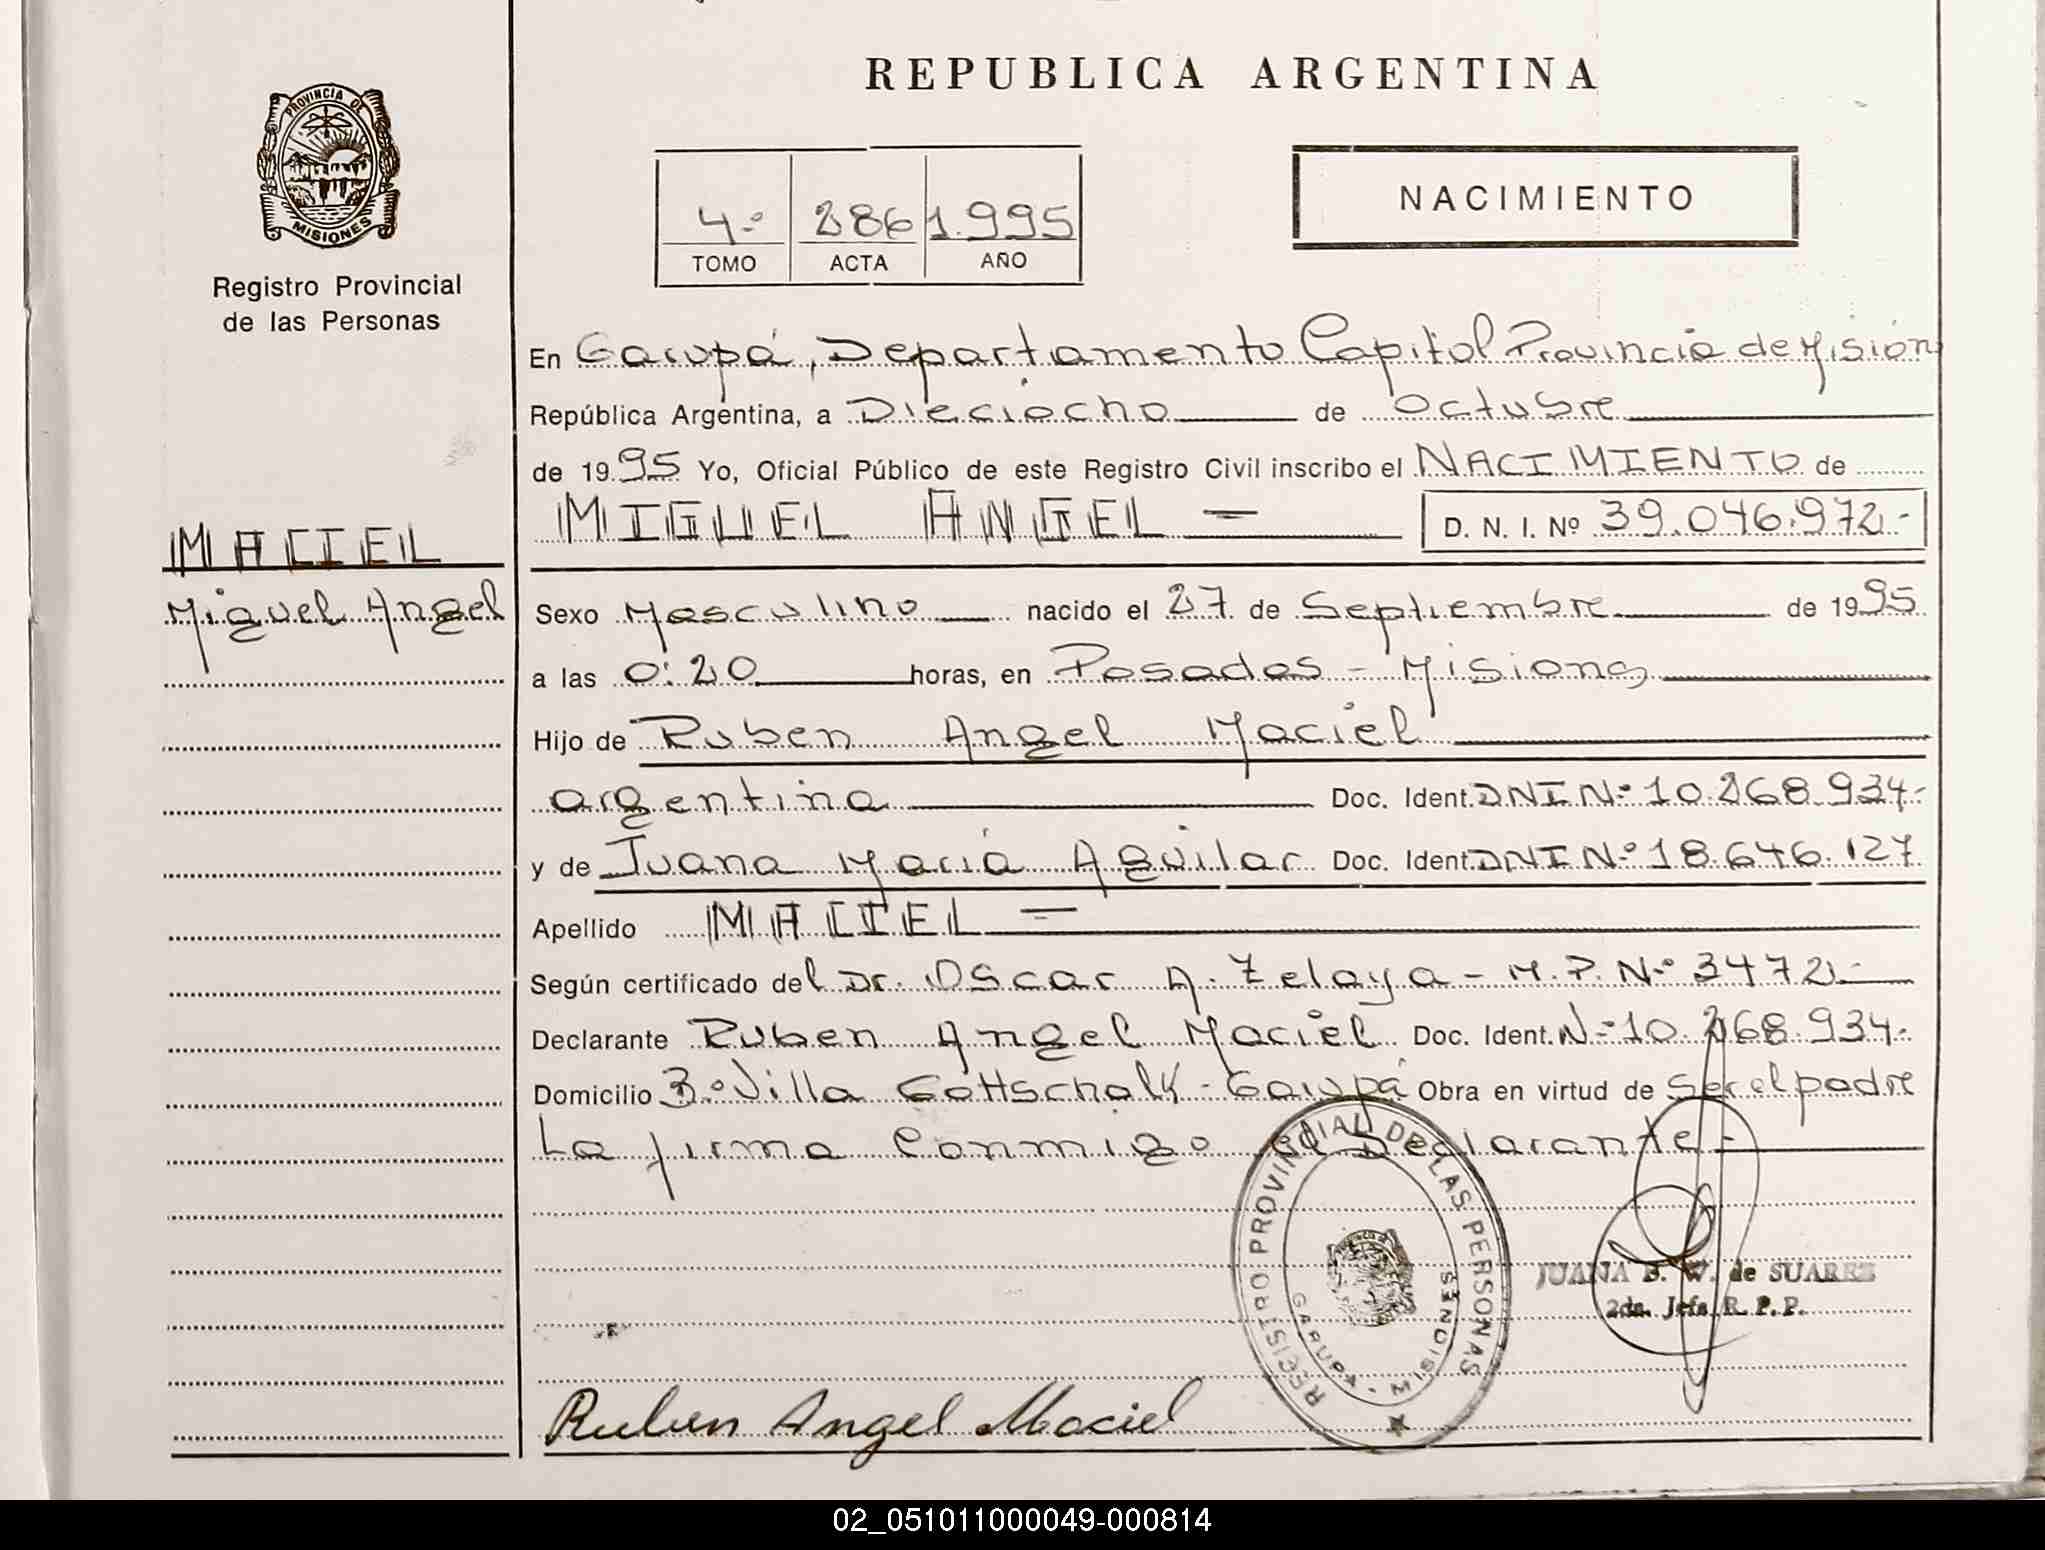 REPUBLICA ARGENTINA
PROVINCIA DE
MISIONES
Registro Provincial
de las Personas
4º 286 1.995
TOMO ACTA AÑO
NACIMIENTO
En Garupá, Departamento Capital Provincia de Mision
República Argentina, a Dieciocho de Octubre
de 1995 Yo, Oficial Público de este Registro Civil inscribo el NACIMIENTO de
MIGUEL ANGEL - D. N. I. Nº 39.046.972.-
MACIEL
Miguel Angel
Sexo Masculino nacido el 27 de Septiembre de 1995
a las 0:20 horas, en Posadas - Misiones
Hijo de Ruben Angel Maciel
argentina Doc. Ident. DNI Nº 10.268.934.-
y de Juana María Aguilar Doc. Ident. DNI Nº 18.646.127
Apellido MACIEL -
Según certificado del Dr. Oscar A. Zelaya - M.P. Nº 3472.-
Declarante Ruben Angel Maciel Doc. Ident. Nº 10.268.934.-
Domicilio Bº Villa Gottschalk - Garupá Obra en virtud de Ser el padre
La firma Conmigo el Declarante.-
REGISTRO PROVINCIAL DE LAS PERSONAS
GARUPA - MISIONES
JUANA B. W. de SUAREZ
2da. Jefa R. P. P.
Ruben Angel Maciel
02_051011000049-000814